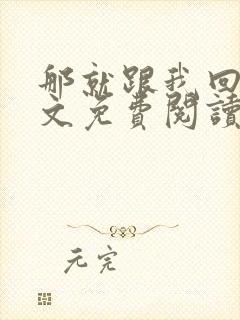 那就跟我回
文免费閱讀
元完